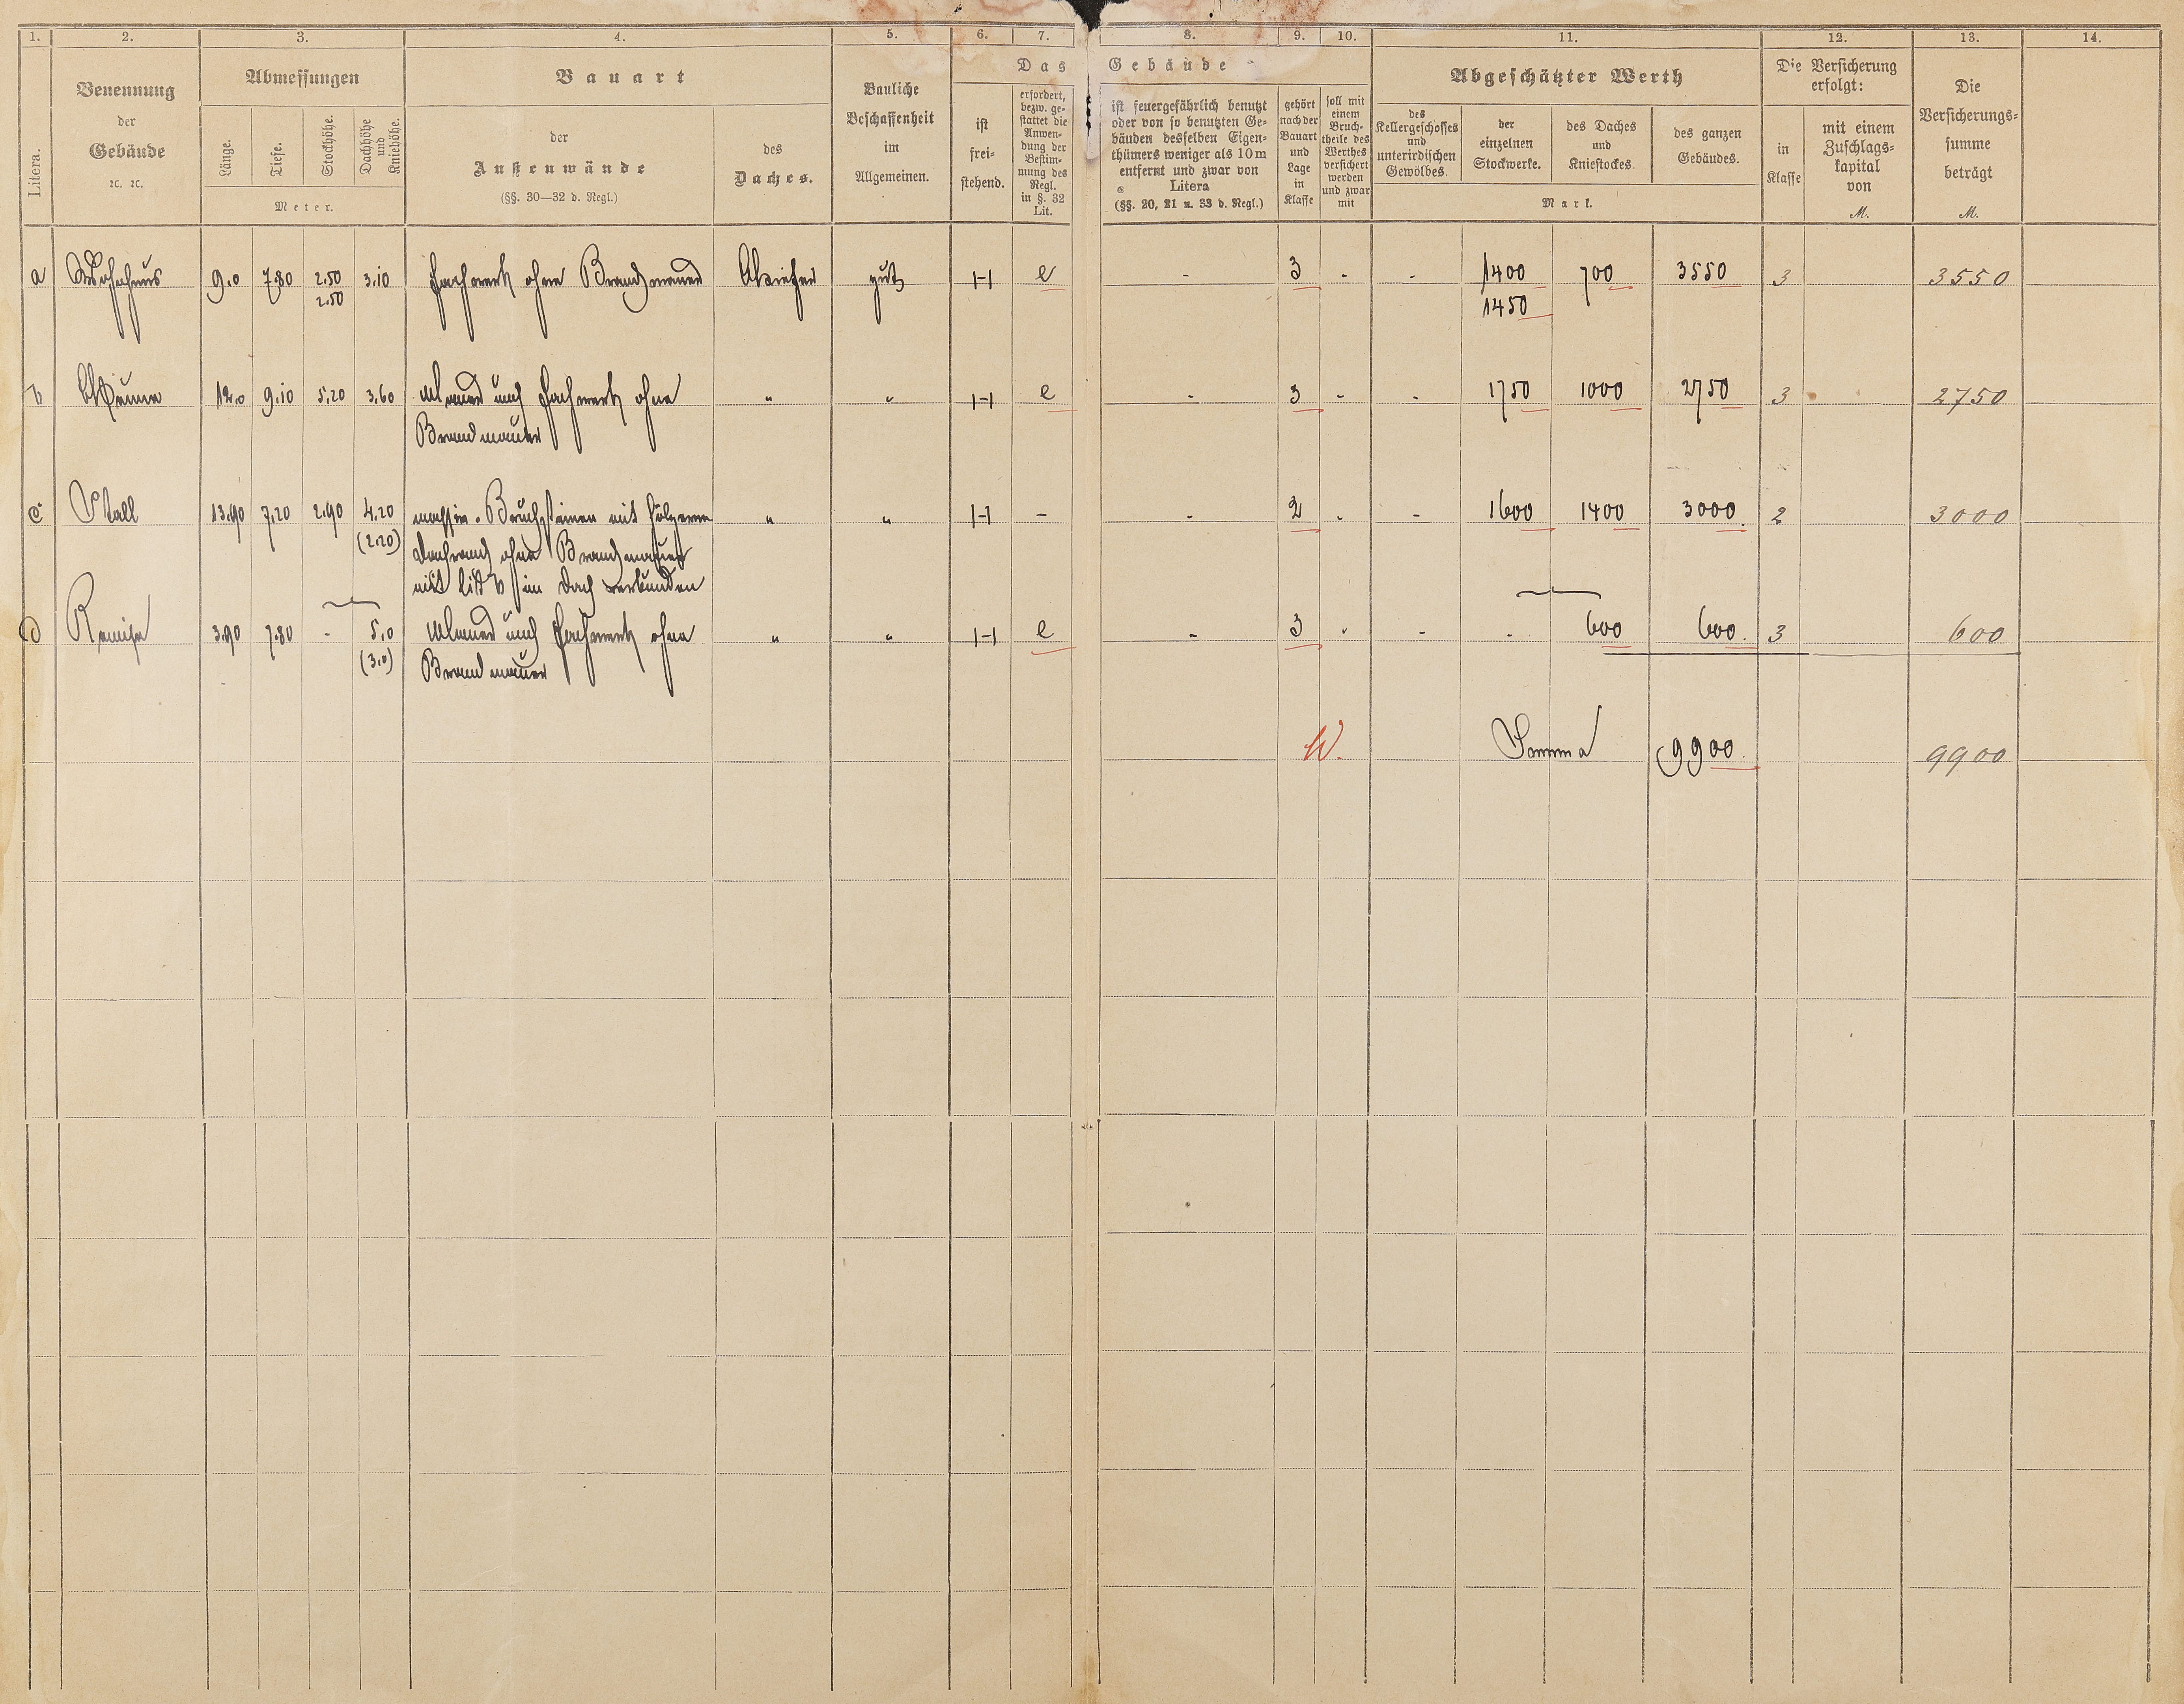 1. 2. 3. 4. 5. 6. 7. 8. 9. 10. 11. 12. 13. 14.
Litera.
Benennung
der
Gebäude
ꝛc. ꝛc.
Abmessungen
Länge.
Tiefe.
Stockhöhe.
Dachhöhe
und
Kniehöhe.
Meter.
Bauart
der
Außenwände
(§§. 30—32 d. Regl.)
des
Daches.
Bauliche
Beschaffenheit
im
Allgemeinen.
Das Gebäude
ist
frei-
stehend.
erfordert,
bezw. ge-
stattet die
Anwen-
dung der
Bestim-
mung des
Regl.
in §. 32
Lit.
ist feuergefährlich benutzt
oder von so benutzten Ge-
bäuden desselben Eigen-
thümers weniger als 10 m
entfernt und zwar von
Litera
(§§. 20, 21 u. 33 d. Regl.)
gehört
nach der
Bauart
und
Lage
in
Klasse
soll mit
einem
Bruch-
theile des
Werthes
versichert
werden
und zwar
mit
Abgeschätzter Werth
des
Kellergeschosses
und
unterirdischen
Gewölbes.
der
einzelnen
Stockwerke.
des Daches
und
Kniestockes.
des ganzen
Gebäudes.
Mark.
Die Versicherung
erfolgt:
in
Klasse
mit einem
Zuschlags-
kapital
von
M.
Die
Versicherungs-
summe
beträgt
M.
a Wohnhaus 9.0 7.80 2.50 3.10 Fachwerk ohne Brandmauer gut e - 3 - - 1400 700 3550 3 3550
2.50 1450
b Scheune 12.0 9.10 5.20 3.60 Mauer und Fachwerk ohne " " e - 3 - - 1750 1000 2750 3 2750
Brandmauer
c Stall 13.90 7.20 2.90 4.20 massiv. Bruchsteinen mit hölzerne " " - - 2 - - 1600 1400 3000 2 3000
(2.20) Dachwand ohne Brandmauer
mit Litt b im Dach verbunden
d Remise 3.90 7.80 - 5.0 Mauer und Fachwerk ohne " " e - 3 " - - 600 600. 3 600
(3.0) Brandmauer
W. Summa 9900. 9900